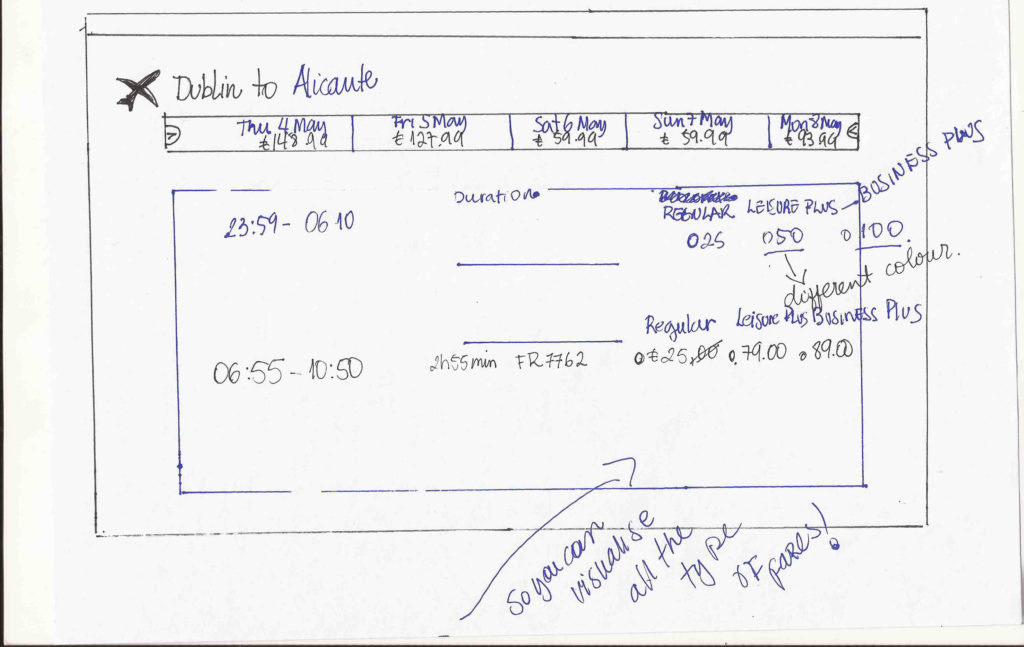 Dublin to Alicante
Thu 4 May Fri 5 May Sat 6 May Sun 7 May Mon 8 May
€148.99 € 127.99 € 59.99 € 59.99 € 93.99
BUSINESS PLUS
Duration
REGULAR LEISURE PLUS
23:59 - 06 10
025 050 0 100.
different colour.
Regular Leisure Plus BUSINESS PlUS
06:55 - 10:50 2h55min FR7762 €25,00 79.00 89.00
so you can
visualise
all the
type
of fares!